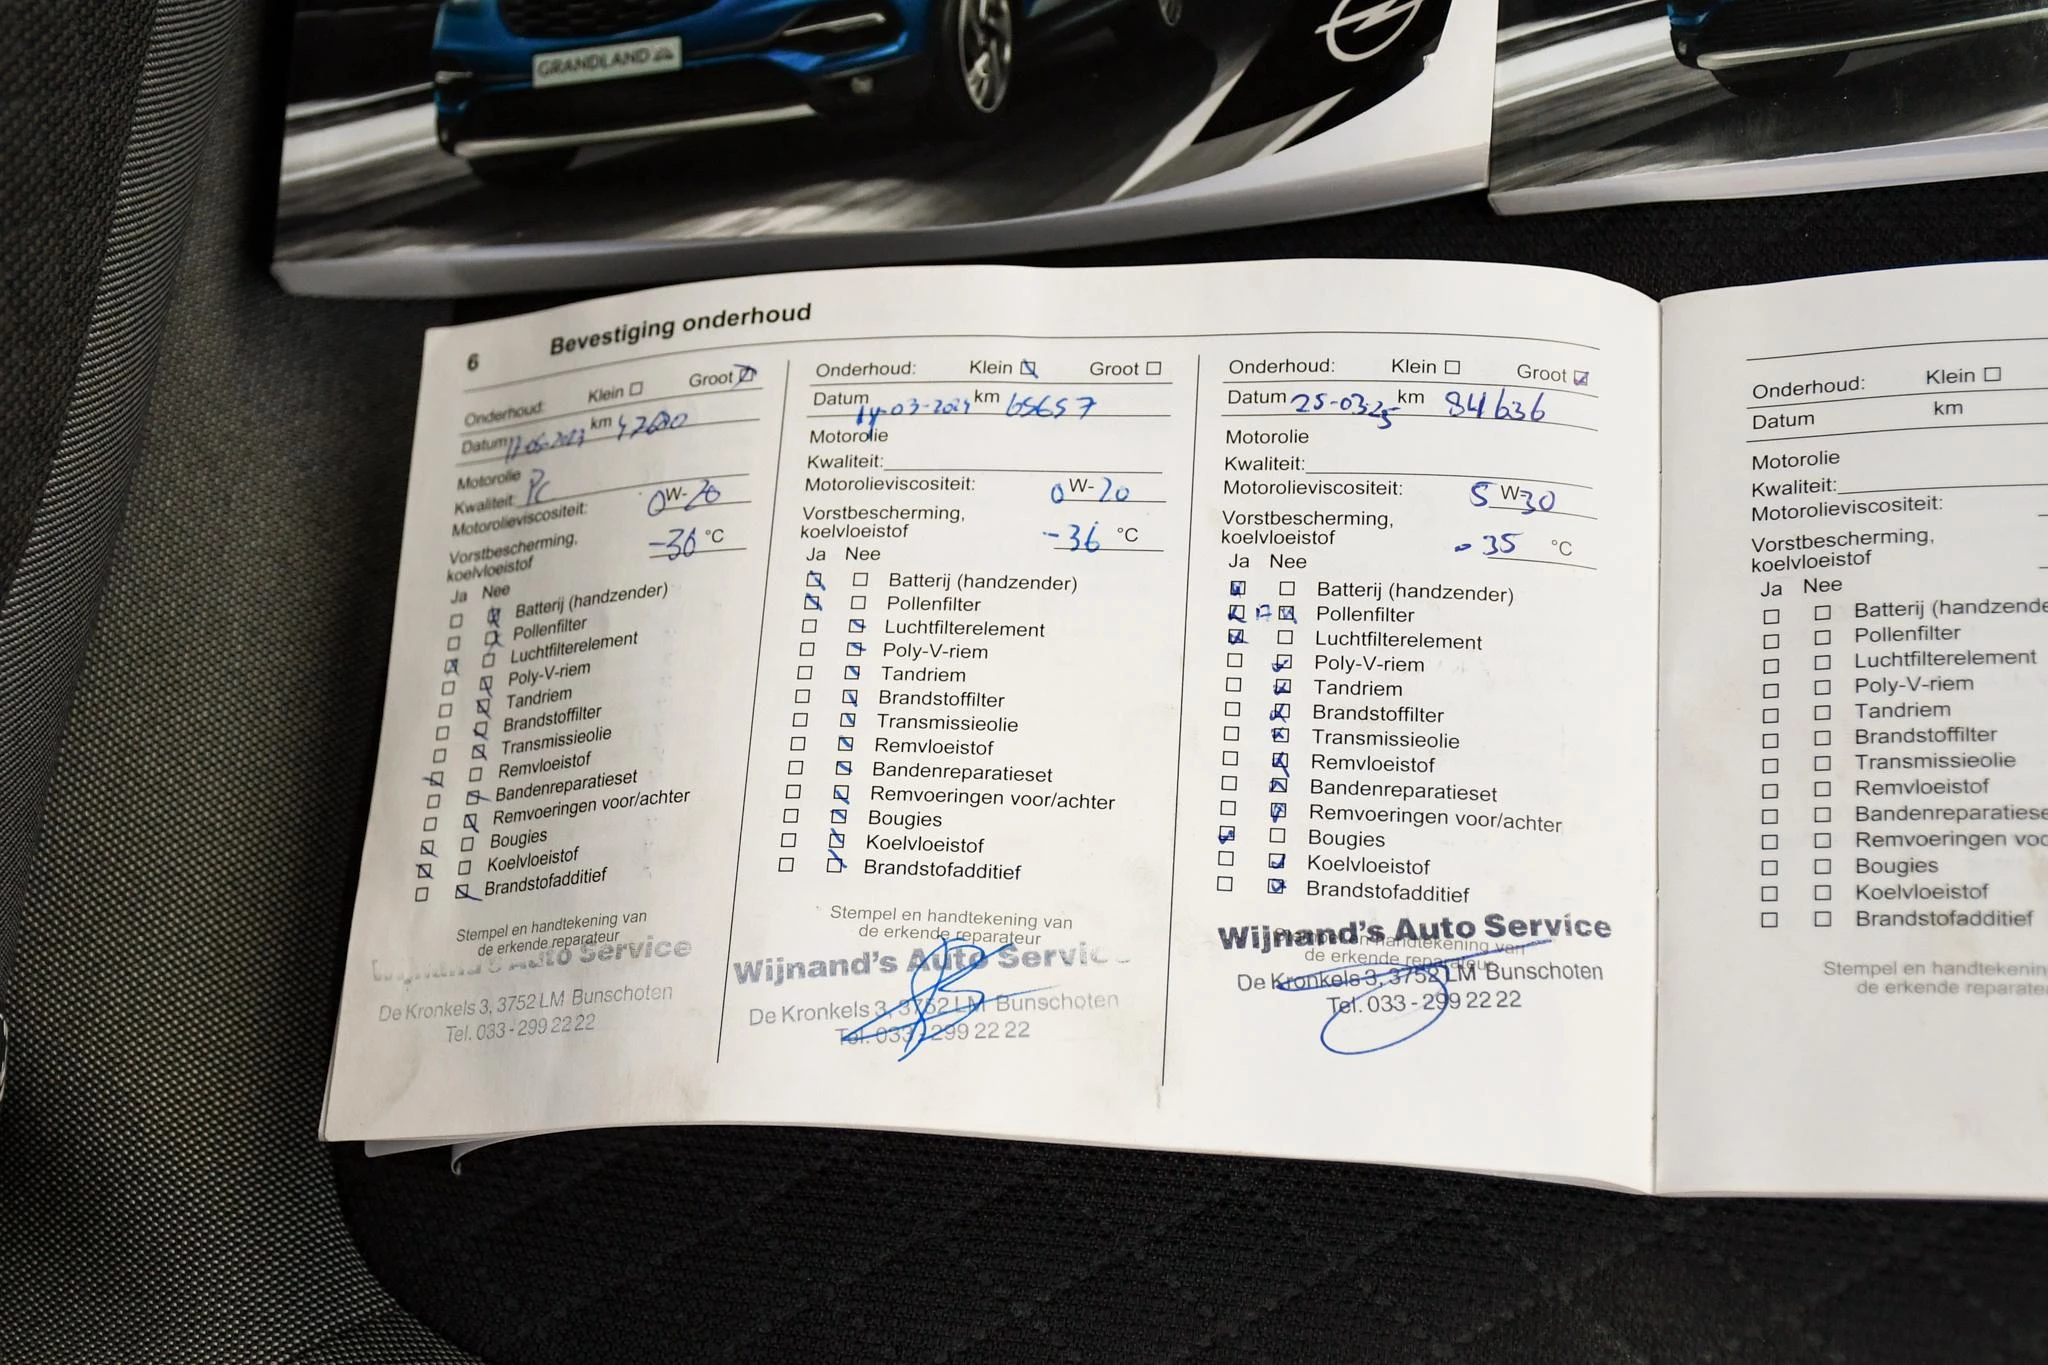 GRANDLAND X
6 Bevestiging onderhoud
Onderhoud: Klein Groot
Datum 17-05-2023 km 47680
Motorolie
Kwaliteit: PC
Motorolieviscositeit: 0W-20
Vorstbescherming,
koelvloeistof -36 °C
Ja Nee
Batterij (handzender)
Pollenfilter
Luchtfilterelement
Poly-V-riem
Tandriem
Brandstoffilter
Transmissieolie
Remvloeistof
Bandenreparatieset
Remvoeringen voor/achter
Bougies
Koelvloeistof
Brandstofadditief
Stempel en handtekening van
de erkende reparateur
Wijnand's Auto Service
De Kronkels 3, 3752 LM Bunschoten
Tel. 033 - 299 22 22
Onderhoud: Klein Groot
Datum 14-03-2024 km 65657
Motorolie
Kwaliteit:
Motorolieviscositeit: 0W-20
Vorstbescherming,
koelvloeistof -36 °C
Ja Nee
Batterij (handzender)
Pollenfilter
Luchtfilterelement
Poly-V-riem
Tandriem
Brandstoffilter
Transmissieolie
Remvloeistof
Bandenreparatieset
Remvoeringen voor/achter
Bougies
Koelvloeistof
Brandstofadditief
Stempel en handtekening van
de erkende reparateur
Wijnand's Auto Service
De Kronkels 3, 3752 LM Bunschoten
Tel. 033 - 299 22 22
Onderhoud: Klein Groot
Datum 25-03-25 km 84636
Motorolie
Kwaliteit:
Motorolieviscositeit: 5W-30
Vorstbescherming,
koelvloeistof -35 °C
Ja Nee
Batterij (handzender)
Pollenfilter
Luchtfilterelement
Poly-V-riem
Tandriem
Brandstoffilter
Transmissieolie
Remvloeistof
Bandenreparatieset
Remvoeringen voor/achter
Bougies
Koelvloeistof
Brandstofadditief
Wijnand's Auto Service
Stempel en handtekening van
de erkende reparateur
De Kronkels 3, 3752 LM Bunschoten
Tel. 033 - 299 22 22
Onderhoud: Klein
Datum km
Motorolie
Kwaliteit:
Motorolieviscositeit:
Vorstbescherming,
koelvloeistof
Ja Nee
Batterij (handzende
Pollenfilter
Luchtfilterelement
Poly-V-riem
Tandriem
Brandstoffilter
Transmissieolie
Remvloeistof
Bandenreparatiese
Remvoeringen vo
Bougies
Koelvloeistof
Brandstofadditief
Stempel en handtekening
de erkende reparate